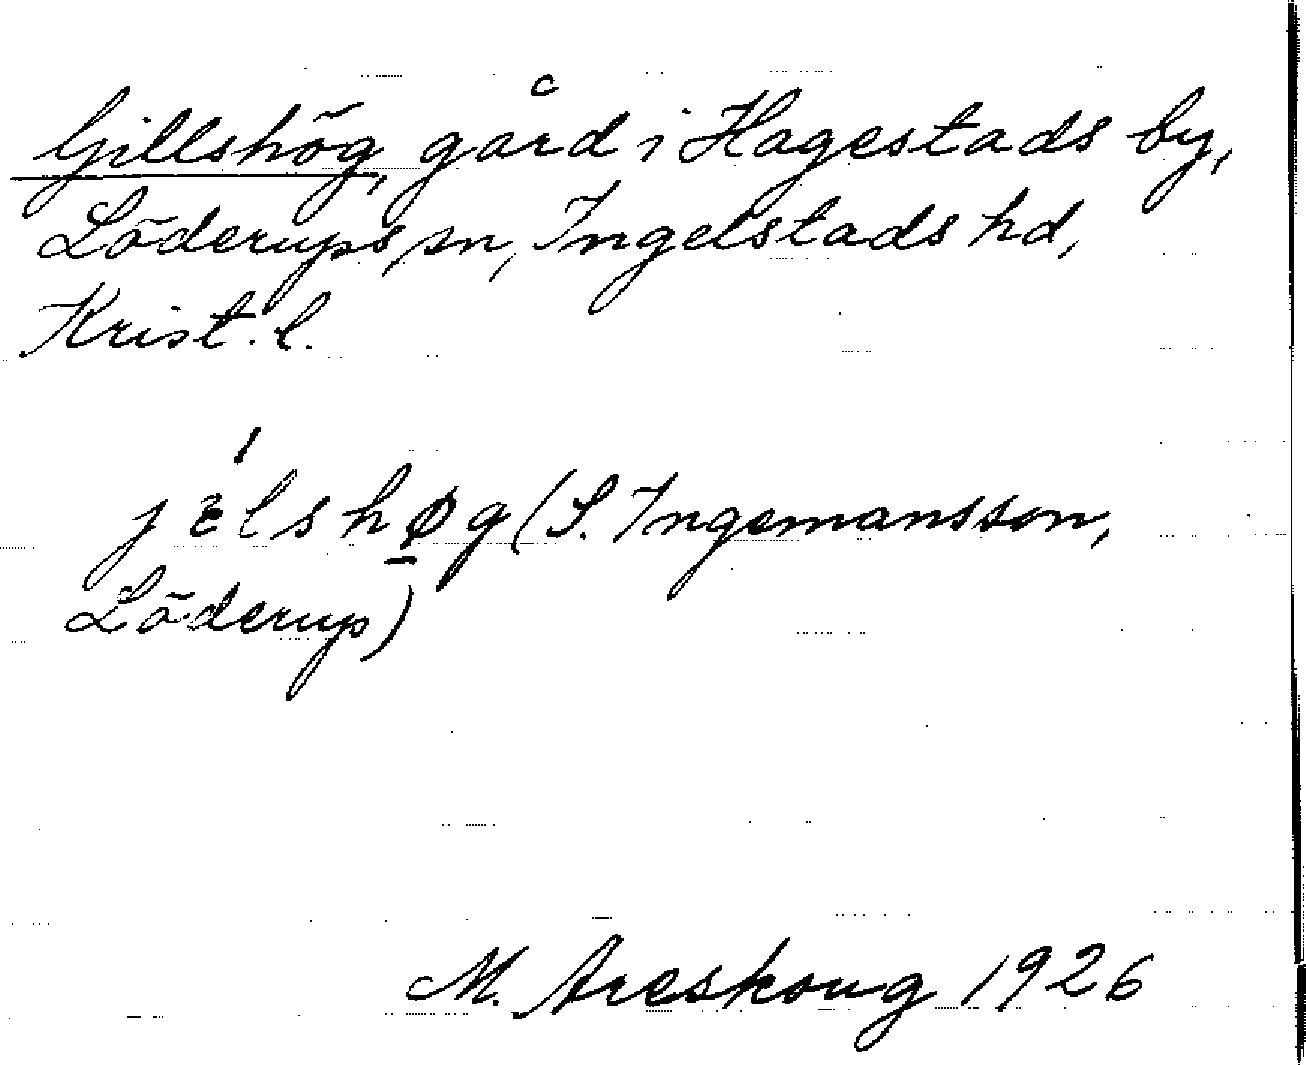 Gillshög, gård i Hagestads by,
Löderups sn, Ingelstads hd,
Krist. l.
jɛ́lshø̠g (S. Ingemansson,
Löderup)
M. Areskoug 1926